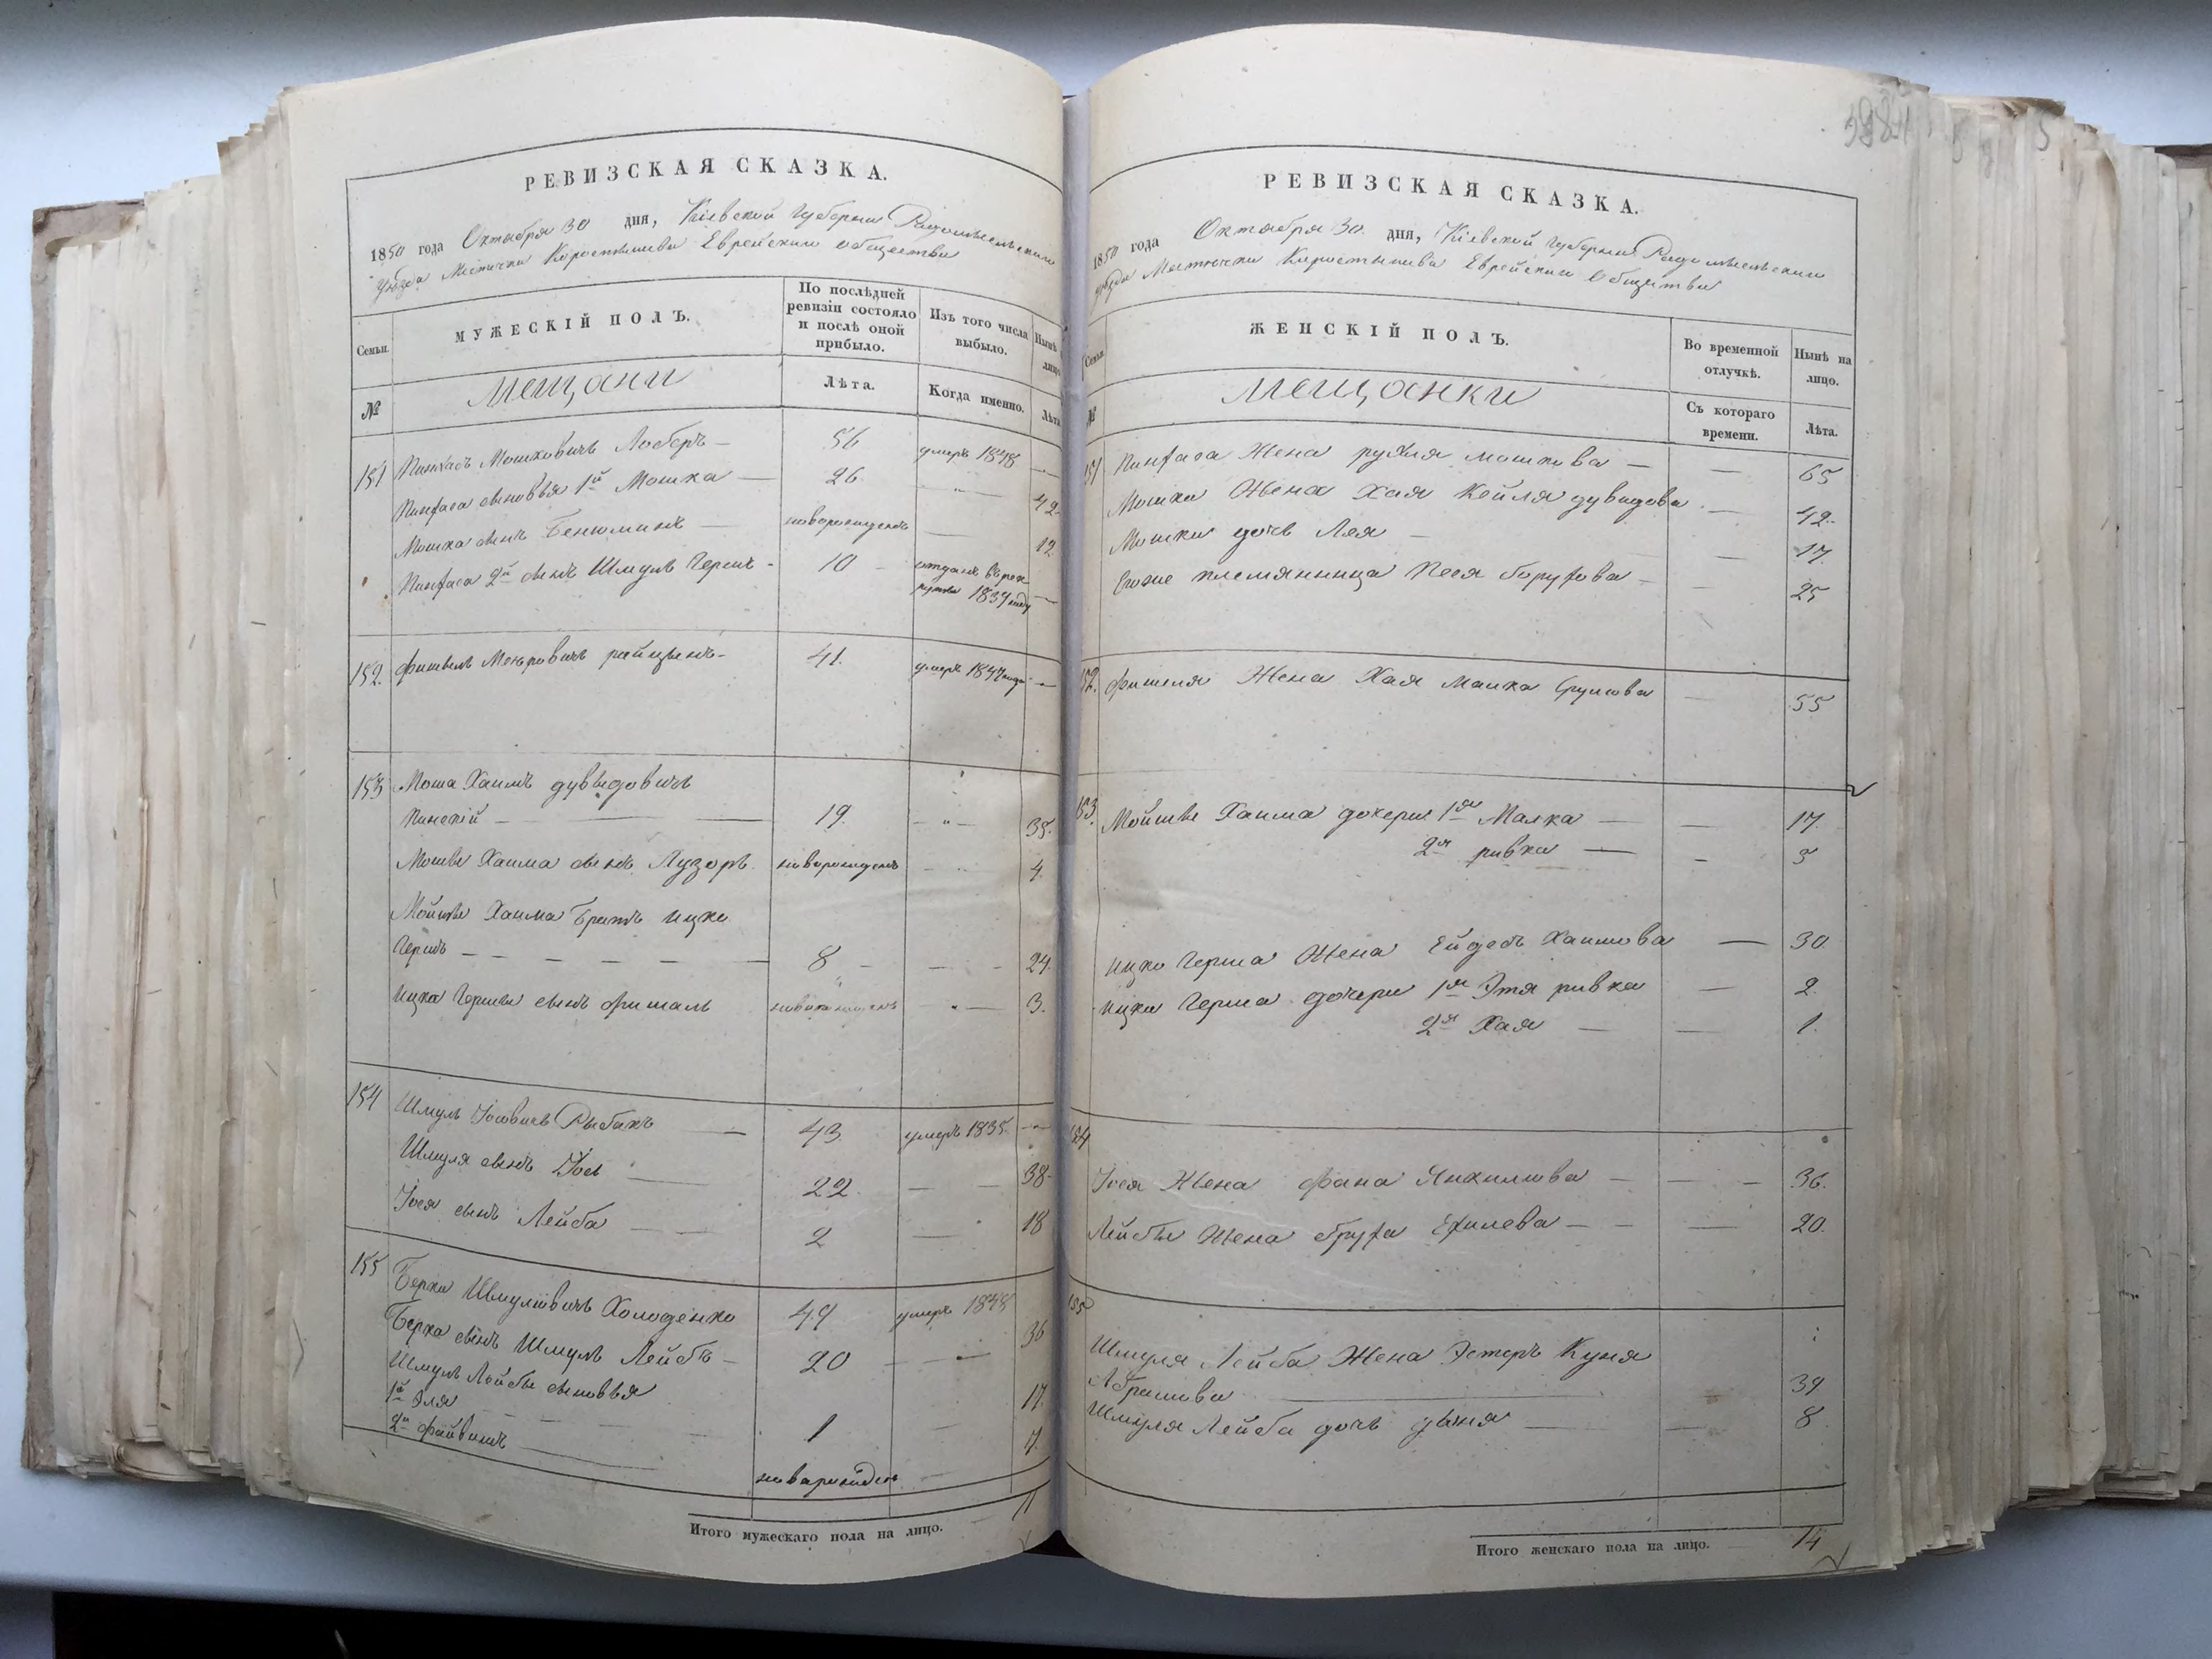 РЕВИЗСКАЯ СКАЗКА.
1850 года Октября 30 дня, Кіевской Губерніи Радомысльскаго
уѣзда Мѣстечка Коростышева Еврейскаго общества
Семьи.
МУЖЕСКІЙ ПОЛЪ.
По послѣдней ревизіи состояло и послѣ оной прибыло.
Изъ того числа выбыло.
Нынѣ лицо
№
Мещани
Лѣта.
Когда именно.
Лѣта
151 Пинхасъ Мошковичъ Лоберъ — 56 умеръ 1848 —
Пинхаса сыновья 1й Мошка — 26 — 42
Мошка сынъ Бенюминъ — новорожденъ — 12
Пинхаса 2й сынъ Шмуль Гершъ - 10 - отданъ въ рек
рутыи 1839 году —
152. Фишель Меѣровичъ райцынъ - 41. умеръ 1847 года —
153 Моша Хаимъ дувыдовичъ
Пинскій — 19. — „ — 35.
Мошки Хаима сынъ Лузоръ. новорожденъ - 4
Мойши Хаима Братъ ицко
Гершъ — 8 — 24
ицка Гершки сынъ Фишаль новорожденъ - 3.
154 Шмуль Іосьовичъ Рыбакъ — 43 умеръ 1835. —
Шмуля сынъ Іось — 22. — 38
Іося сынъ Лейба — 2 — 18
155 Берко Шмулювичъ Холоденко 49 умеръ 1848
Берка сынъ Шмуль Лейбъ — 20 — 36
Шмуль Лейбы сыновья
1й Эля — 1 — 17.
2й Файвишъ — новорожден — 7
Итого мужескаго пола на лицо. 11
РЕВИЗСКАЯ СКАЗКА.
1850 года Октября 30. дня, Кіевской Губерніи Радомысльскаго
уѣзда Мѣстечка Коростышева Еврейскаго Общества
Семьи
ЖЕНСКІЙ ПОЛЪ.
Во временной отлучкѣ.
Нынѣ на лицо.
№
Мещанки
Съ котораго времени.
Лѣта.
151 Пинхаса Жена рухля мошкова — — 65
Мошка Жена Хая Кейля дувидова. — 42.
Мошки дочь Лея — — 17.
Егоже племянница Песя борухова — — 25
152. Фишеля Жена Хая Малка Срулова — 55
153. Мойши Хаима дочери 1я Малка — — 17.
2я ривка — - 5
ицко Герша Жена Ейдесь Хаимова — 30.
ицка Герша дочери 1я Этя ривка — 2.
2я Хая — — 1.
154
Іося Жена Фана Янкилова — — — 36.
Лейбы Жена бруха Ехилева — — — 20.
155
Шмуля Лейба Жена Эстеръ Куня
Абрамова — 39
Шмуля Лейба дочь дыня — — 8
Итого женскаго пола на лицо. 14